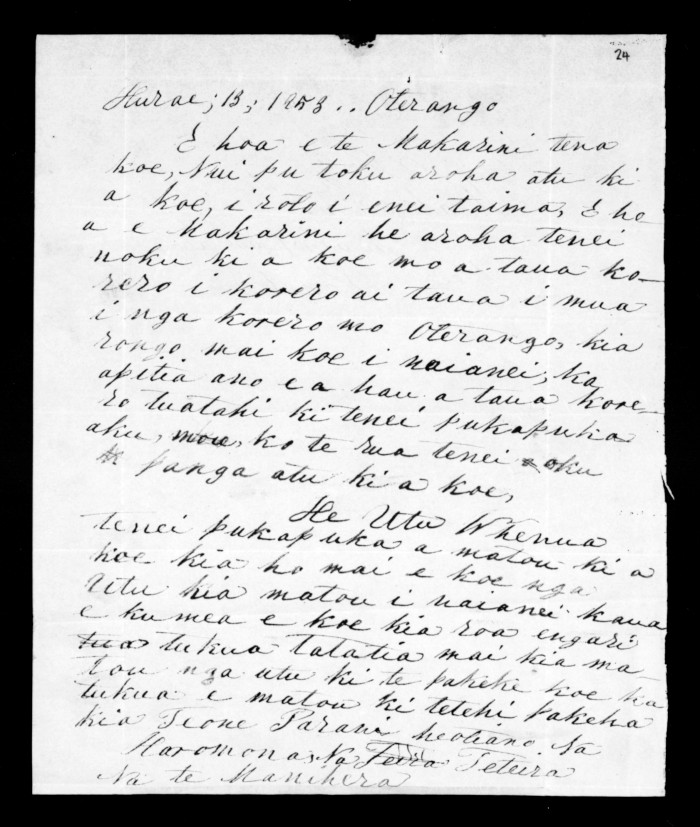 24
Hurae; 13; 1853.. Oterango
E hoa e te Makarini tena
koe, Nui pu toku aroha atu ki
a koe, i roto i enei taima, E ho
a e Makarini he aroha tenei
noku ki a koe mo a taua ko-
rero i korero ai taua i mua
i nga korero mo Oterango, kia
rongo mai koe i naianei, ka
apitia ano e a hau a taua kore-
ro tuatahi ki tenei pukapuka
aku, ko te rua tenei oku
panga atu ki a koe,
He Utu Whenua
tenei pukapuka a matou ki a
koe kia ho mai e koe nga
Utu kia matou i naianei kaua
e kumea e koe kia roa engari
tukua tatatia mai kia ma
tou nga utu ki te pakeke koe ka
tukua e matou ki tetehi pakeha
kia Teone Parani heotiano. Na
Haromona, Na Teira Teteira
Na te Manihera